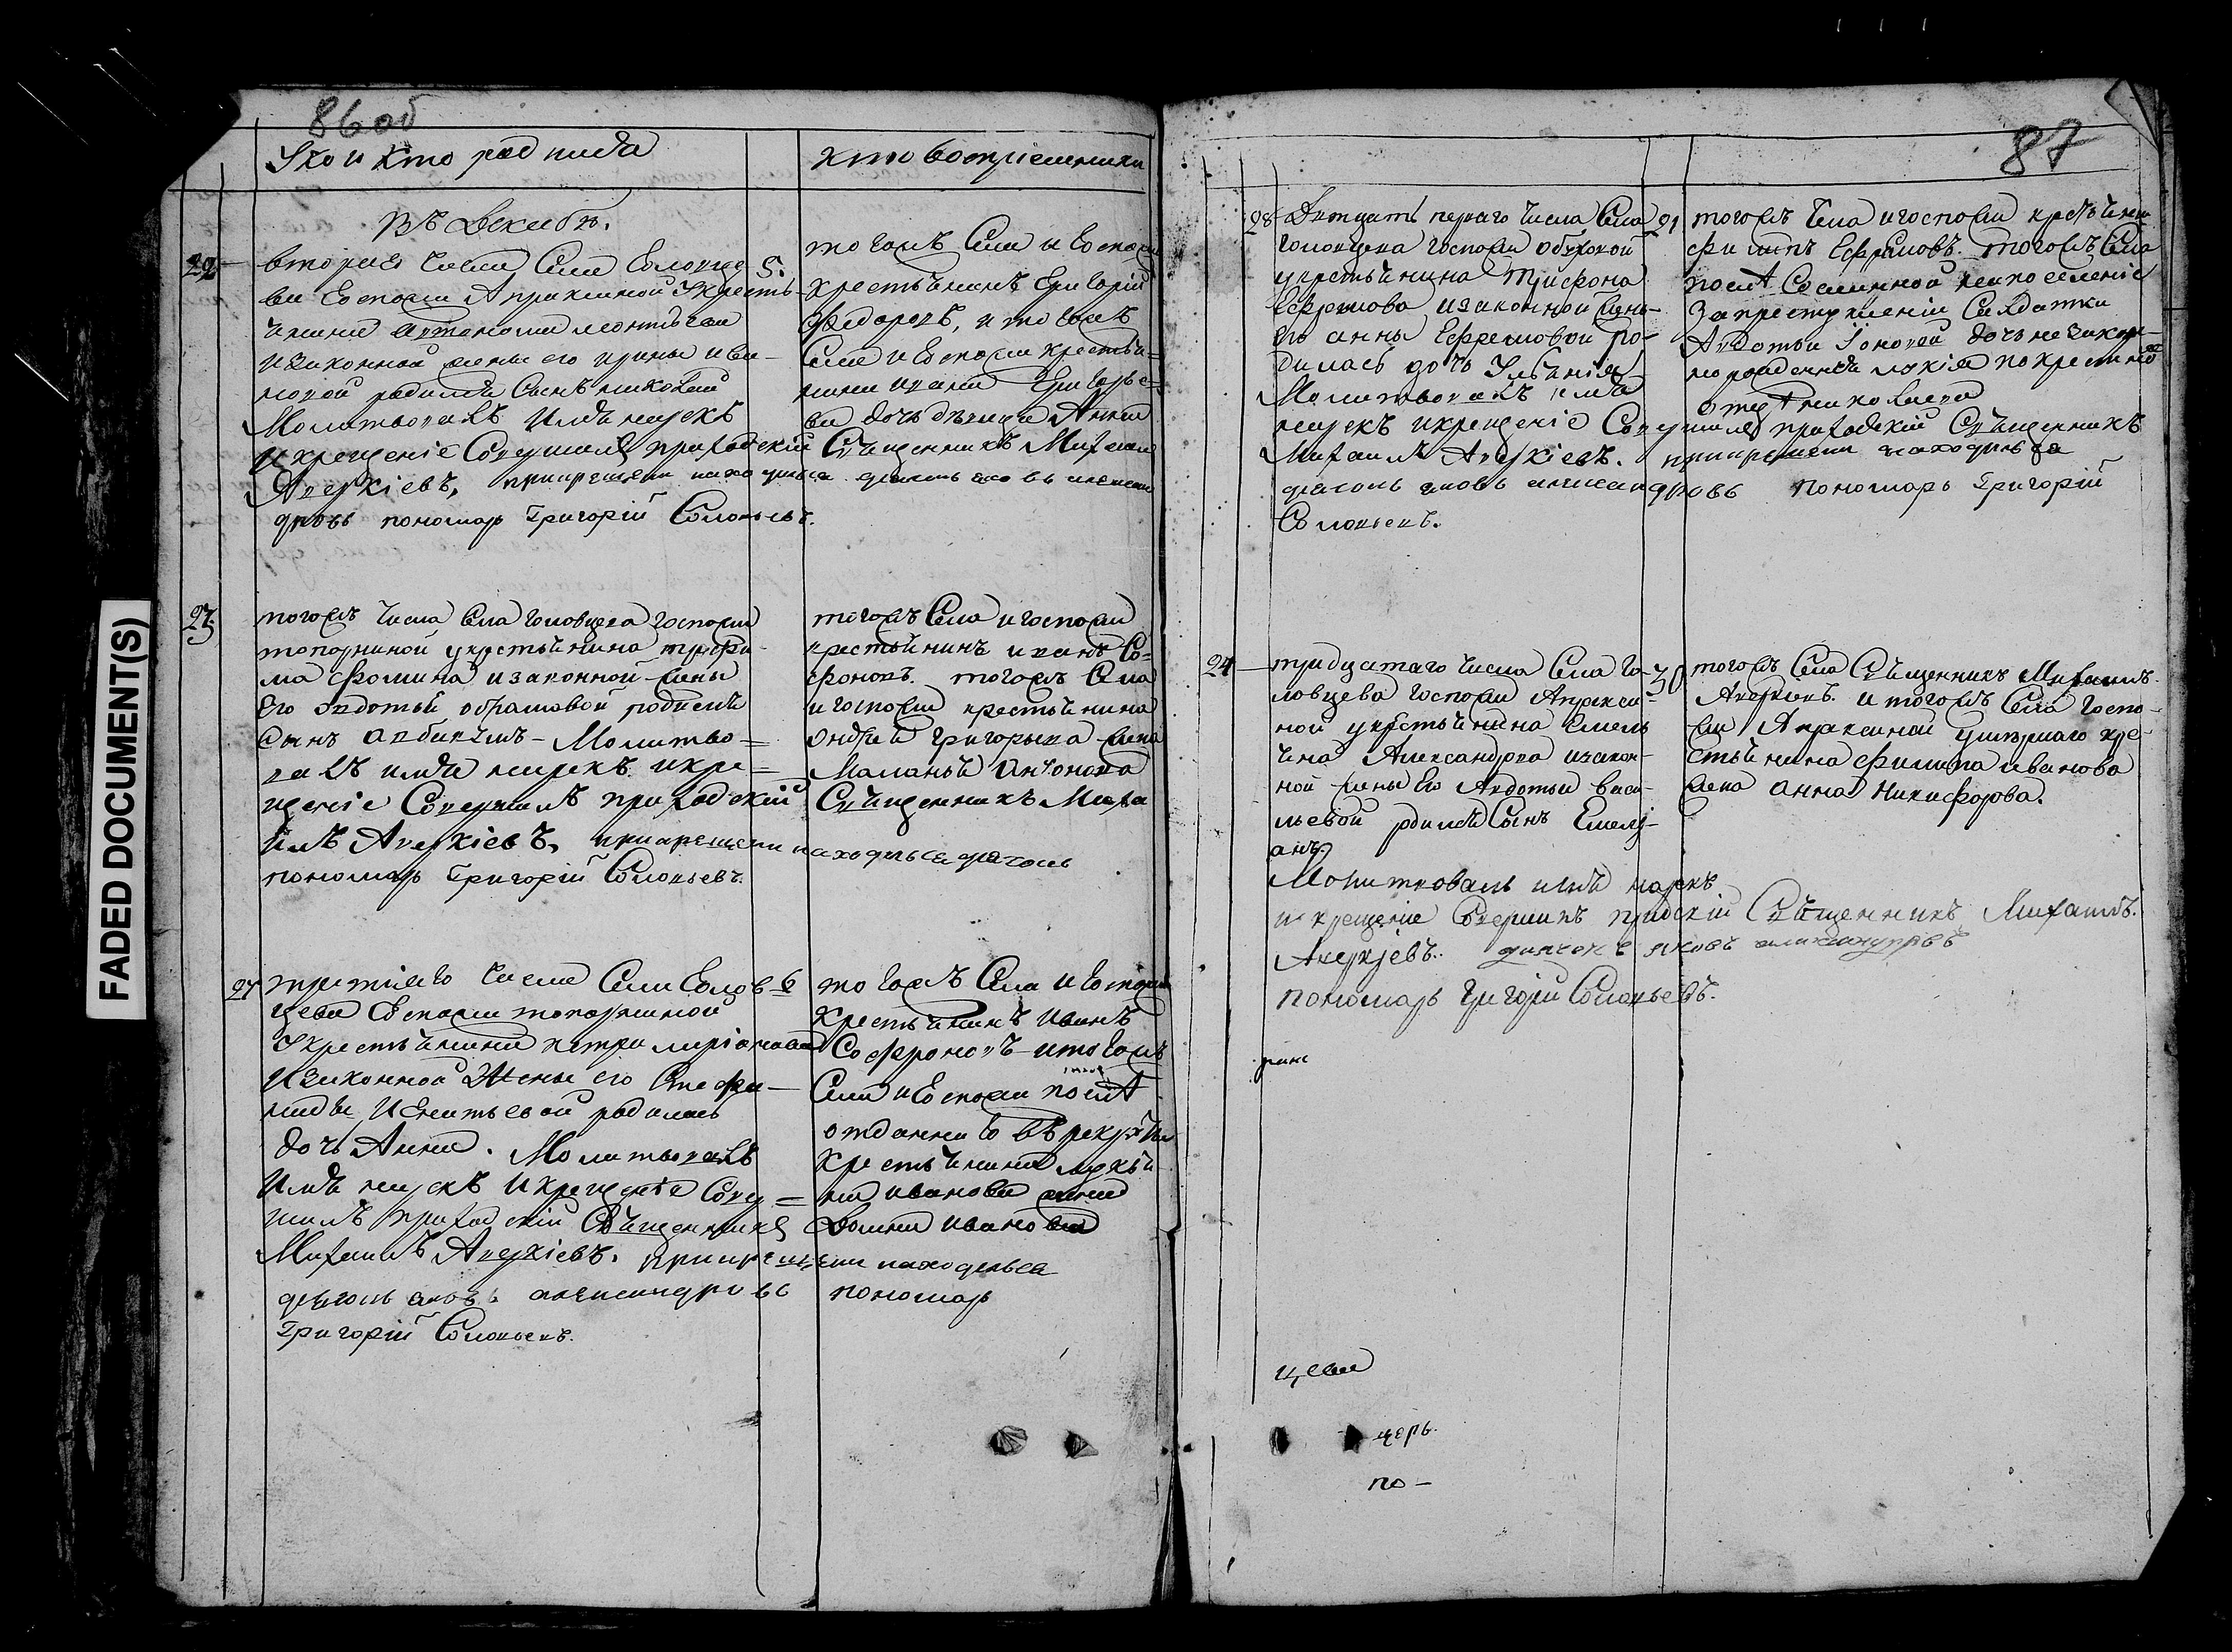 86 об
У ко и кто родился
хто восприемники
Въ Декабѣ.
22
втораго числа Села Головце
5.
ва Госпожи Апраксиной У кресть
янина Артамона леонтьева
и законной жены его ирины ива
новой родился Сынъ николай
Молитвовалъ имя нарекъ
и крещеніе Совершилъ приходскій Священникъ Михаилъ
Аверкіевъ, при крещени находился дьячокъ яковъ алексан
дровъ пономарь Григорій Соловьевъ.
тогожъ Села и Госпожи
крестьянинъ Григорій
Федоровъ, и тогожъ
Села и Госпожи крестья=
нина Григорье=
ва дочь дѣвица Анна
23
тогожъ числа Села Головцева Госпожи
топорниной у крестьянина трофи
ма Фомина и законной жены
Его Авдотьи абрамовой родился
Сынъ
Молитво=
валъ имя нарекъ и кре=
щеніе Совершилъ приходскій Священникъ Миха
илъ Аверкіевъ, при крещени находился дьячокъ
пономарь Григорій Соловьевъ.
тогожъ Села и Госпожи
крестьянинъ иванъ Со=
фоновъ. тогожъ Села
и Госпожи крестьянина
Андрея Григорьева жена
Маланья Антонова
27
третіяго числа Села Голов
6
цева Госпожи топорниной
У крестьянина петра ларіонова
и законной Жены его Стефа
ниды Игнатьевой родилась
дочь Анна. Молитвовалъ
имя нарекъ и крещеніе Совер=
шилъ приходскій Священникъ
Михаилъ Аверкіевъ. при крещени находился
дьячокъ яковъ александровъ пономарь
Григорій Соловьевъ.
тогожъ Села и Госпожи
Крестьянинъ иванъ
Софроновъ и тогожъ
Села и Госпожи
отданнаго въ рекруты
Крестьянина лукья
на иванова жена
Домна иванова
87
28
Двадцать перваго числа Села
21
головцева Госпожи обуховой
у крестьянина Трифона
Ефремова и законной жены
Его анны Ефремовой ро-
дилась дочь Ульянія
Молитвовалъ имя
нарекъ и крещеніе Совершилъ приходскій Священникъ
Михаилъ Аверкіевъ. при крещени находился
дьячокъ яковъ александровъ пономарь Григорій
Соловьевъ.
тогожъ Села и госпожи крестьянинъ
Филипъ Ефремовъ. тогожъ Села
послѣ Сосланной на поселеніе
За преступленіи Солдатки
Авдотьи дочь незакон-
норожденная по крестному
отцу николаева
24
тридцатаго числа Села Го-
30
ловцева госпожи Апракси-
ной у крестьянина Емель
яна Александрова и закон-
ной жены Его Авдотьи васи-
льевой родился Сынъ Емелі-
анъ
Молитвовалъ имя нарекъ
и крещеніе Совершилъ Священникъ Михаилъ
Аверкіевъ. дьячокъ яковъ александровъ
пономарь Григорій Соловьевъ.
тогожъ Села Священникъ Михаилъ
Аверкіевъ. и тогожъ Села Госпо-
жи Апраксиной умершаго кре-
стьянина Филипа иванова
жена анна Никифорова.
цева
церь.
по-
FADED DOCUMENT(S)